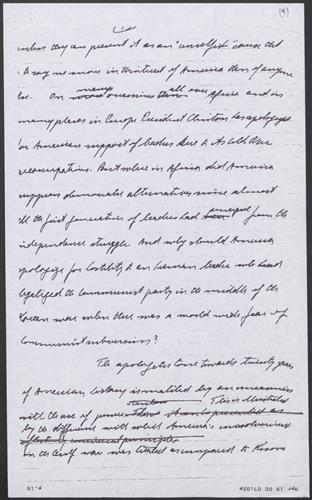 (4)
when they can present it as an "unselfish" course that
is say no more in the interest of America than of anyone
else. On many occasions all over Africa and in
many places in Europe President Clinton has apologized
for American support of leaders due to its Cold War
preoccupations. But where in Africa did America
suppress democratic alternatives since almost
all the first generation of leaders had emerged from the
independence struggle. And why should America
apologize for hostility to an Iranian leader who had
legalized the Communist party in the middle of the
Korean war when there was a world wide fear of
Communist subversion?
The apologetic tone towards twenty years
of American history is matched by an uneasiness
with the use of power. This is illustrated
by the different with which America's involvement
in the Gulf war was treated as compared to Kosovo
P.19
Apr 19 00 07:02